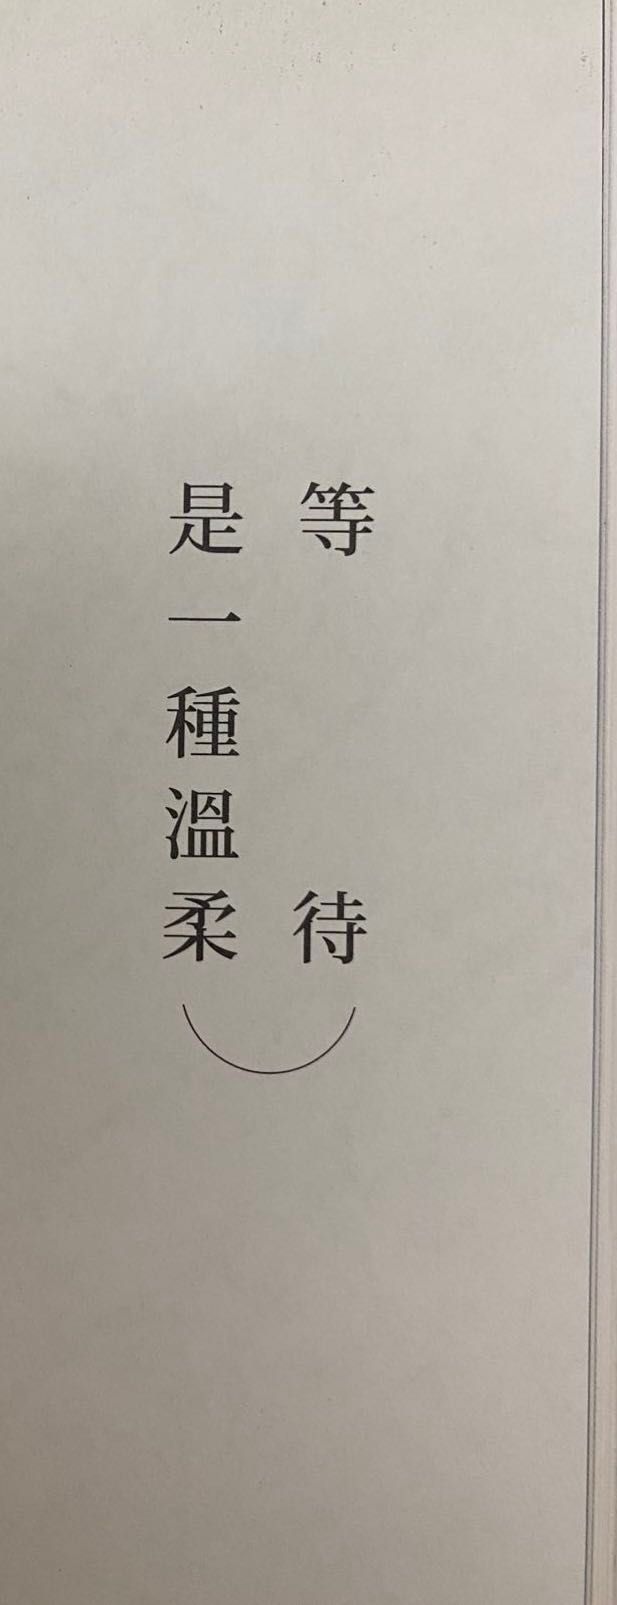 等待
是一種溫柔